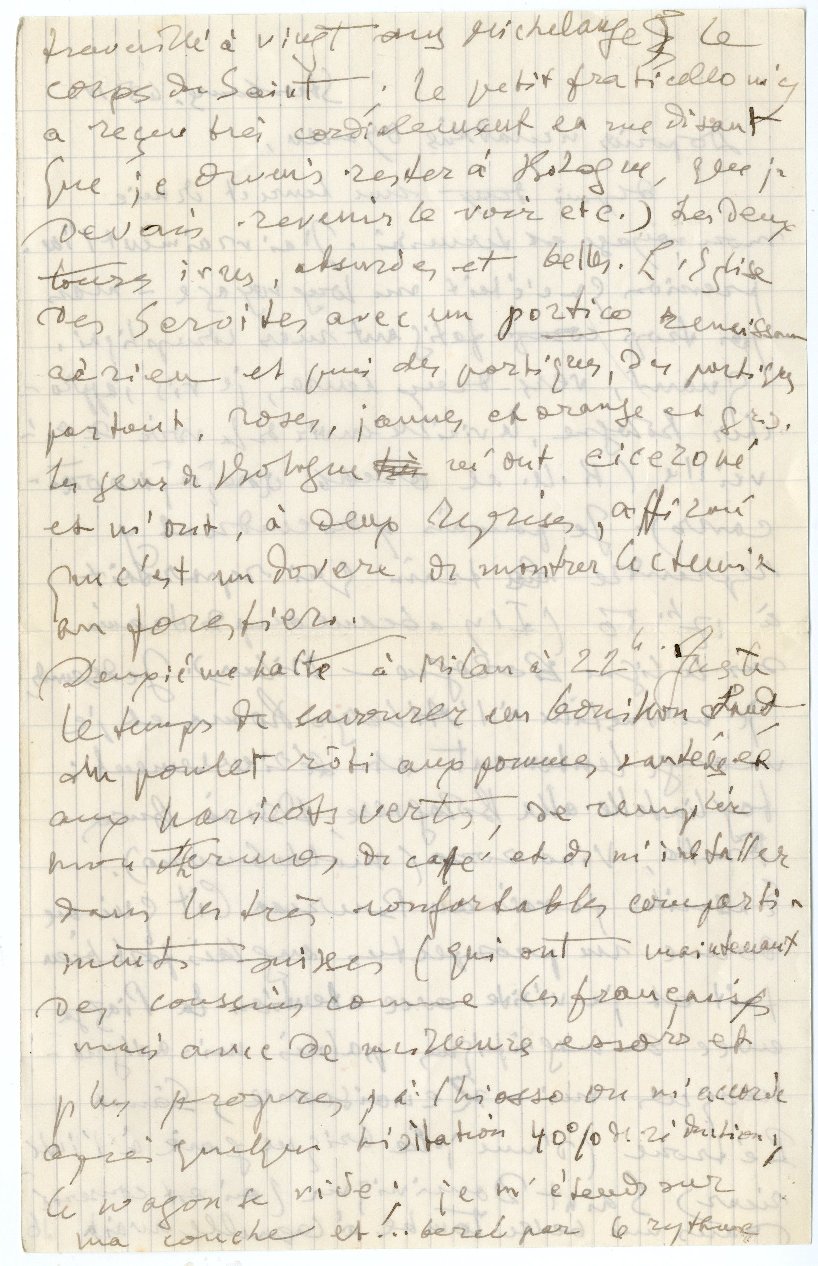 travaillé à vingt ans Michelange) le
corps du Saint. Le petit fraticello m'y
a reçu très cordialement en me disant
que je devais rester à Bologne, que je
devais revenir le voir etc.) Les deux
tours ivres, absurdes et belles. L'Eglise
des Servites avec un portico renaissan
aérien et puis des portiques, des portiques
partout, roses, jaunes et orange et gris.
Les gens de Bologne m'ont ciceroné
et m'ont, à deux reprises, affirmé
que c'est un dovere de montrer le chemin
au forestiero.
Deuxième halte à Milan à 22h. Juste
le temps de savourer un bouillon chaud
du poulet rôti aux pommes sautées et
aux haricots verts, de remplir
mon thermos de café et de m'installer
dans les très confortables comparti-
ments suisses (qui ont maintenant
des coussins comme les français
mais avec de meilleurs essors et
plus propres, à Chiasso on m'accorde
après quelque hésitation 40% de réduction;
le wagon se vide; je m'étends sur
ma couche et... bercé par le rythme